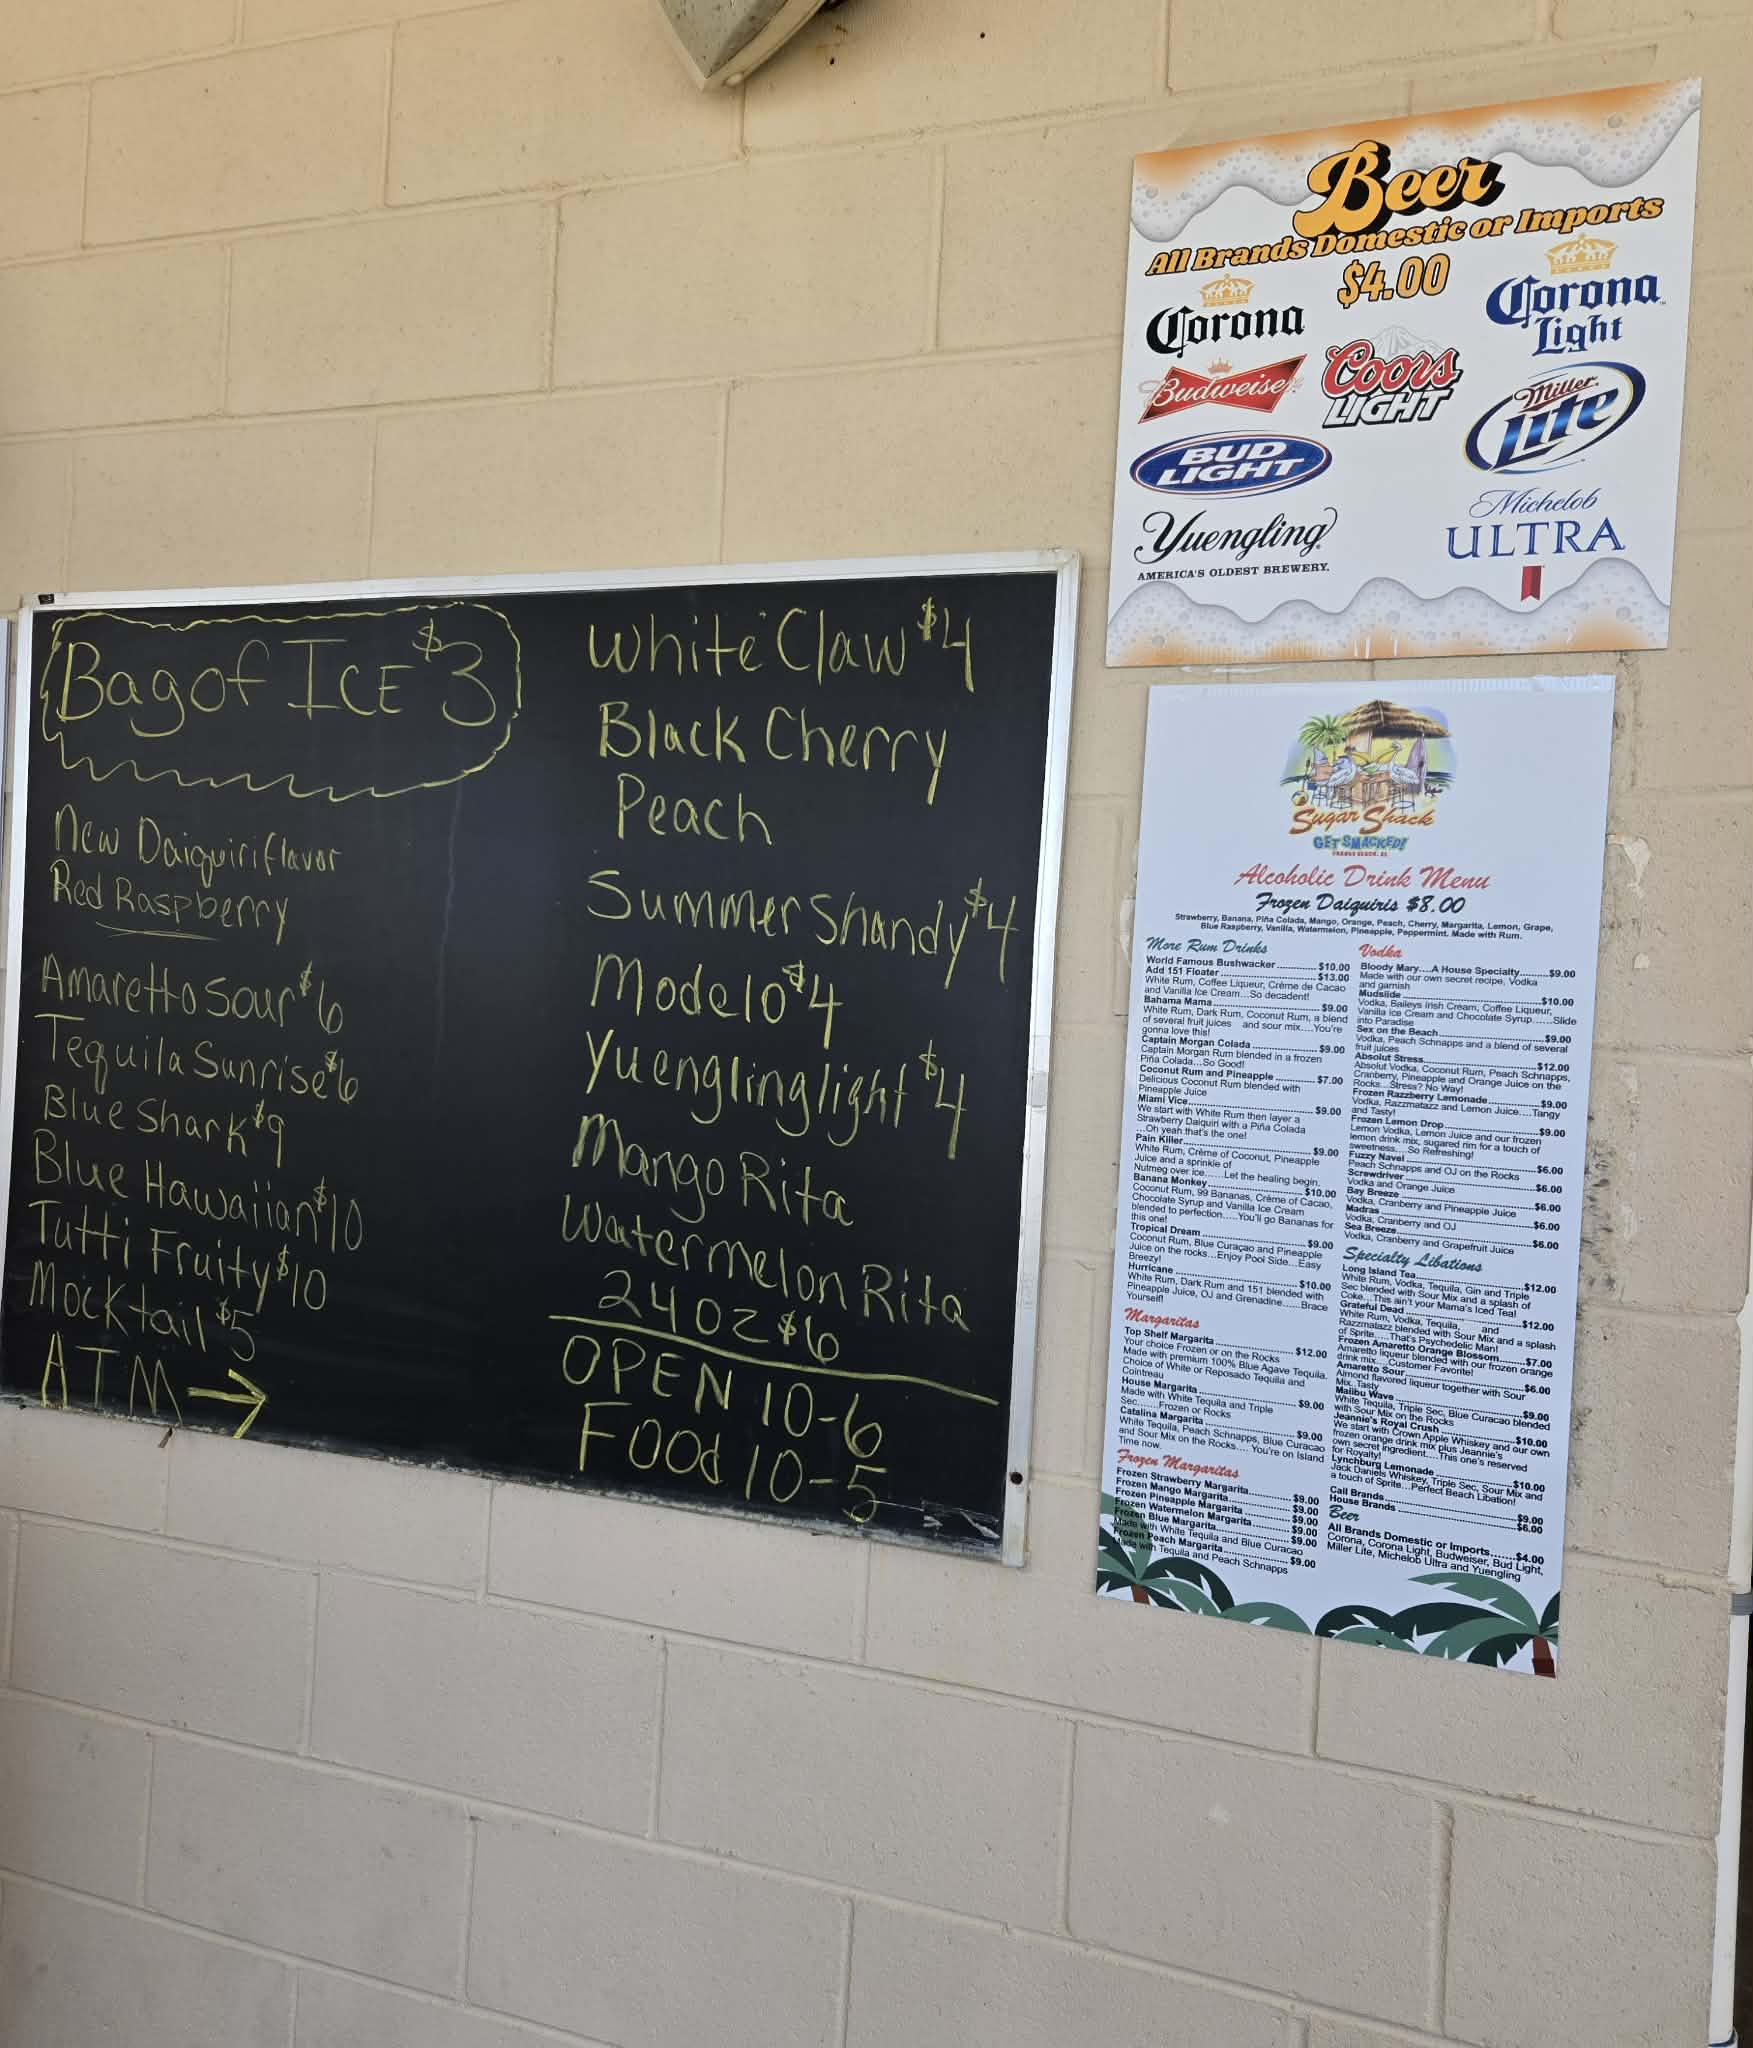 Bag of ICE $3
New Daiquiri flavor
Red Raspberry
Amaretto Sour $6
Tequila Sunrise $6
Blue Shark $9
Blue Hawaiian $10
Tutti Fruity $10
Mocktail $5
ATM →
White Claw $4
Black Cherry
Peach
Summer Shandy $4
Modelo $4
Yuengling light $4
Mango Rita
Watermelon Rita
24oz $6
OPEN 10-6
Food 10-5
Beer
All Brands Domestic or Imports
$4.00
Corona
Corona Light
Budweiser
Coors LIGHT
Miller Lite
BUD LIGHT
Yuengling
AMERICA'S OLDEST BREWERY.
Michelob
ULTRA
Sugar Shack
GET SMACKED!
ORANGE BEACH, AL
Alcoholic Drink Menu
Frozen Daiquiris $8.00
Strawberry, Banana, Piña Colada, Mango, Orange, Peach, Cherry, Margarita, Lemon, Grape,
Blue Raspberry, Vanilla, Watermelon, Pineapple, Peppermint. Made with Rum.
More Rum Drinks
World Famous Bushwacker ............ $10.00
Add 151 Floater ............ $13.00
White Rum, Coffee Liqueur, Crème de Cacao
and Vanilla Ice Cream...So decadent!
Bahama Mama ............ $9.00
White Rum, Dark Rum, Coconut Rum, a blend
of several fruit juices and sour mix....You're
gonna love this!
Captain Morgan Colada ............ $9.00
Captain Morgan Rum blended in a frozen
Piña Colada...So Good!
Coconut Rum and Pineapple ............ $7.00
Delicious Coconut Rum blended with
Pineapple Juice
Miami Vice ............ $9.00
We start with White Rum then layer a
Strawberry Daiquiri with a Piña Colada
...Oh yeah that's the one!
Pain Killer ............ $9.00
White Rum, Crème of Coconut, Pineapple
Juice and a sprinkle of
Nutmeg over ice......Let the healing begin.
Banana Monkey ............ $10.00
Coconut Rum, 99 Bananas, Crème of Cacao,
Chocolate Syrup and Vanilla Ice Cream
blended to perfection.....You'll go Bananas for
this one!
Tropical Dream ............ $9.00
Coconut Rum, Blue Curaçao and Pineapple
Juice on the rocks...Enjoy Pool Side...Easy
Breezy!
Hurricane ............ $10.00
White Rum, Dark Rum and 151 blended with
Pineapple Juice, OJ and Grenadine......Brace
Yourself!
Margaritas
Top Shelf Margarita ............ $12.00
Your choice Frozen or on the Rocks
Made with premium 100% Blue Agave Tequila.
Choice of White or Reposado Tequila and
Cointreau
House Margarita ............ $9.00
Made with White Tequila and Triple
Sec.......Frozen or Rocks
Catalina Margarita ............ $9.00
White Tequila, Peach Schnapps, Blue Curacao
and Sour Mix on the Rocks.... You're on Island
Time now.
Frozen Margaritas
Frozen Strawberry Margarita ............ $9.00
Frozen Mango Margarita ............ $9.00
Frozen Pineapple Margarita ............ $9.00
Frozen Watermelon Margarita ............ $9.00
Frozen Blue Margarita ............ $9.00
Made with White Tequila and Blue Curacao
Frozen Peach Margarita ............ $9.00
Made with Tequila and Peach Schnapps
Vodka
Bloody Mary....A House Specialty ........ $9.00
Made with our own secret recipe, Vodka
and garnish
Mudslide ............ $10.00
Vodka, Baileys Irish Cream, Coffee Liqueur,
Vanilla Ice Cream and Chocolate Syrup......Slide
into Paradise
Sex on the Beach ............ $9.00
Vodka, Peach Schnapps and a blend of several
fruit juices
Absolut Stress ............ $12.00
Absolut Vodka, Coconut Rum, Peach Schnapps,
Cranberry, Pineapple and Orange Juice on the
Rocks...Stress? No Way!
Frozen Razzberry Lemonade ............ $9.00
Vodka, Razzmatazz and Lemon Juice....Tangy
and Tasty!
Frozen Lemon Drop ............ $9.00
Lemon Vodka, Lemon Juice and our frozen
lemon drink mix, sugared rim for a touch of
sweetness....So Refreshing!
Fuzzy Navel ............ $6.00
Peach Schnapps and OJ on the Rocks
Screwdriver ............ $6.00
Vodka and Orange Juice
Bay Breeze ............ $6.00
Vodka, Cranberry and Pineapple Juice
Madras ............ $6.00
Vodka, Cranberry and OJ
Sea Breeze ............ $6.00
Vodka, Cranberry and Grapefruit Juice
Specialty Libations
Long Island Tea ............ $12.00
White Rum, Vodka, Tequila, Gin and Triple
Sec blended with Sour Mix and a splash of
Coke...This ain't your Mama's Iced Tea!
Grateful Dead ............ $12.00
White Rum, Vodka, Tequila, and
Razzmatazz blended with Sour Mix and a splash
of Sprite.....That's Psychedelic Man!
Frozen Amaretto Orange Blossom ........ $7.00
Amaretto liqueur blended with our frozen orange
drink mix....Customer Favorite!
Amaretto Sour ............ $6.00
Almond flavored liqueur together with Sour
Mix. Tasty
Malibu Wave ............ $9.00
White Tequila, Triple Sec, Blue Curacao blended
with Sour Mix on the Rocks
Jeannie's Royal Crush ............ $10.00
We start with Crown Apple Whiskey and our own
frozen orange drink mix plus Jeannie's
own secret ingredient....This one's reserved
for Royalty!
Lynchburg Lemonade ............ $10.00
Jack Daniels Whiskey, Triple Sec, Sour Mix and
a touch of Sprite...Perfect Beach Libation!
Call Brands ............ $9.00
House Brands ............ $6.00
Beer
All Brands Domestic or Imports ....... $4.00
Corona, Corona Light, Budweiser, Bud Light,
Miller Lite, Michelob Ultra and Yuengling